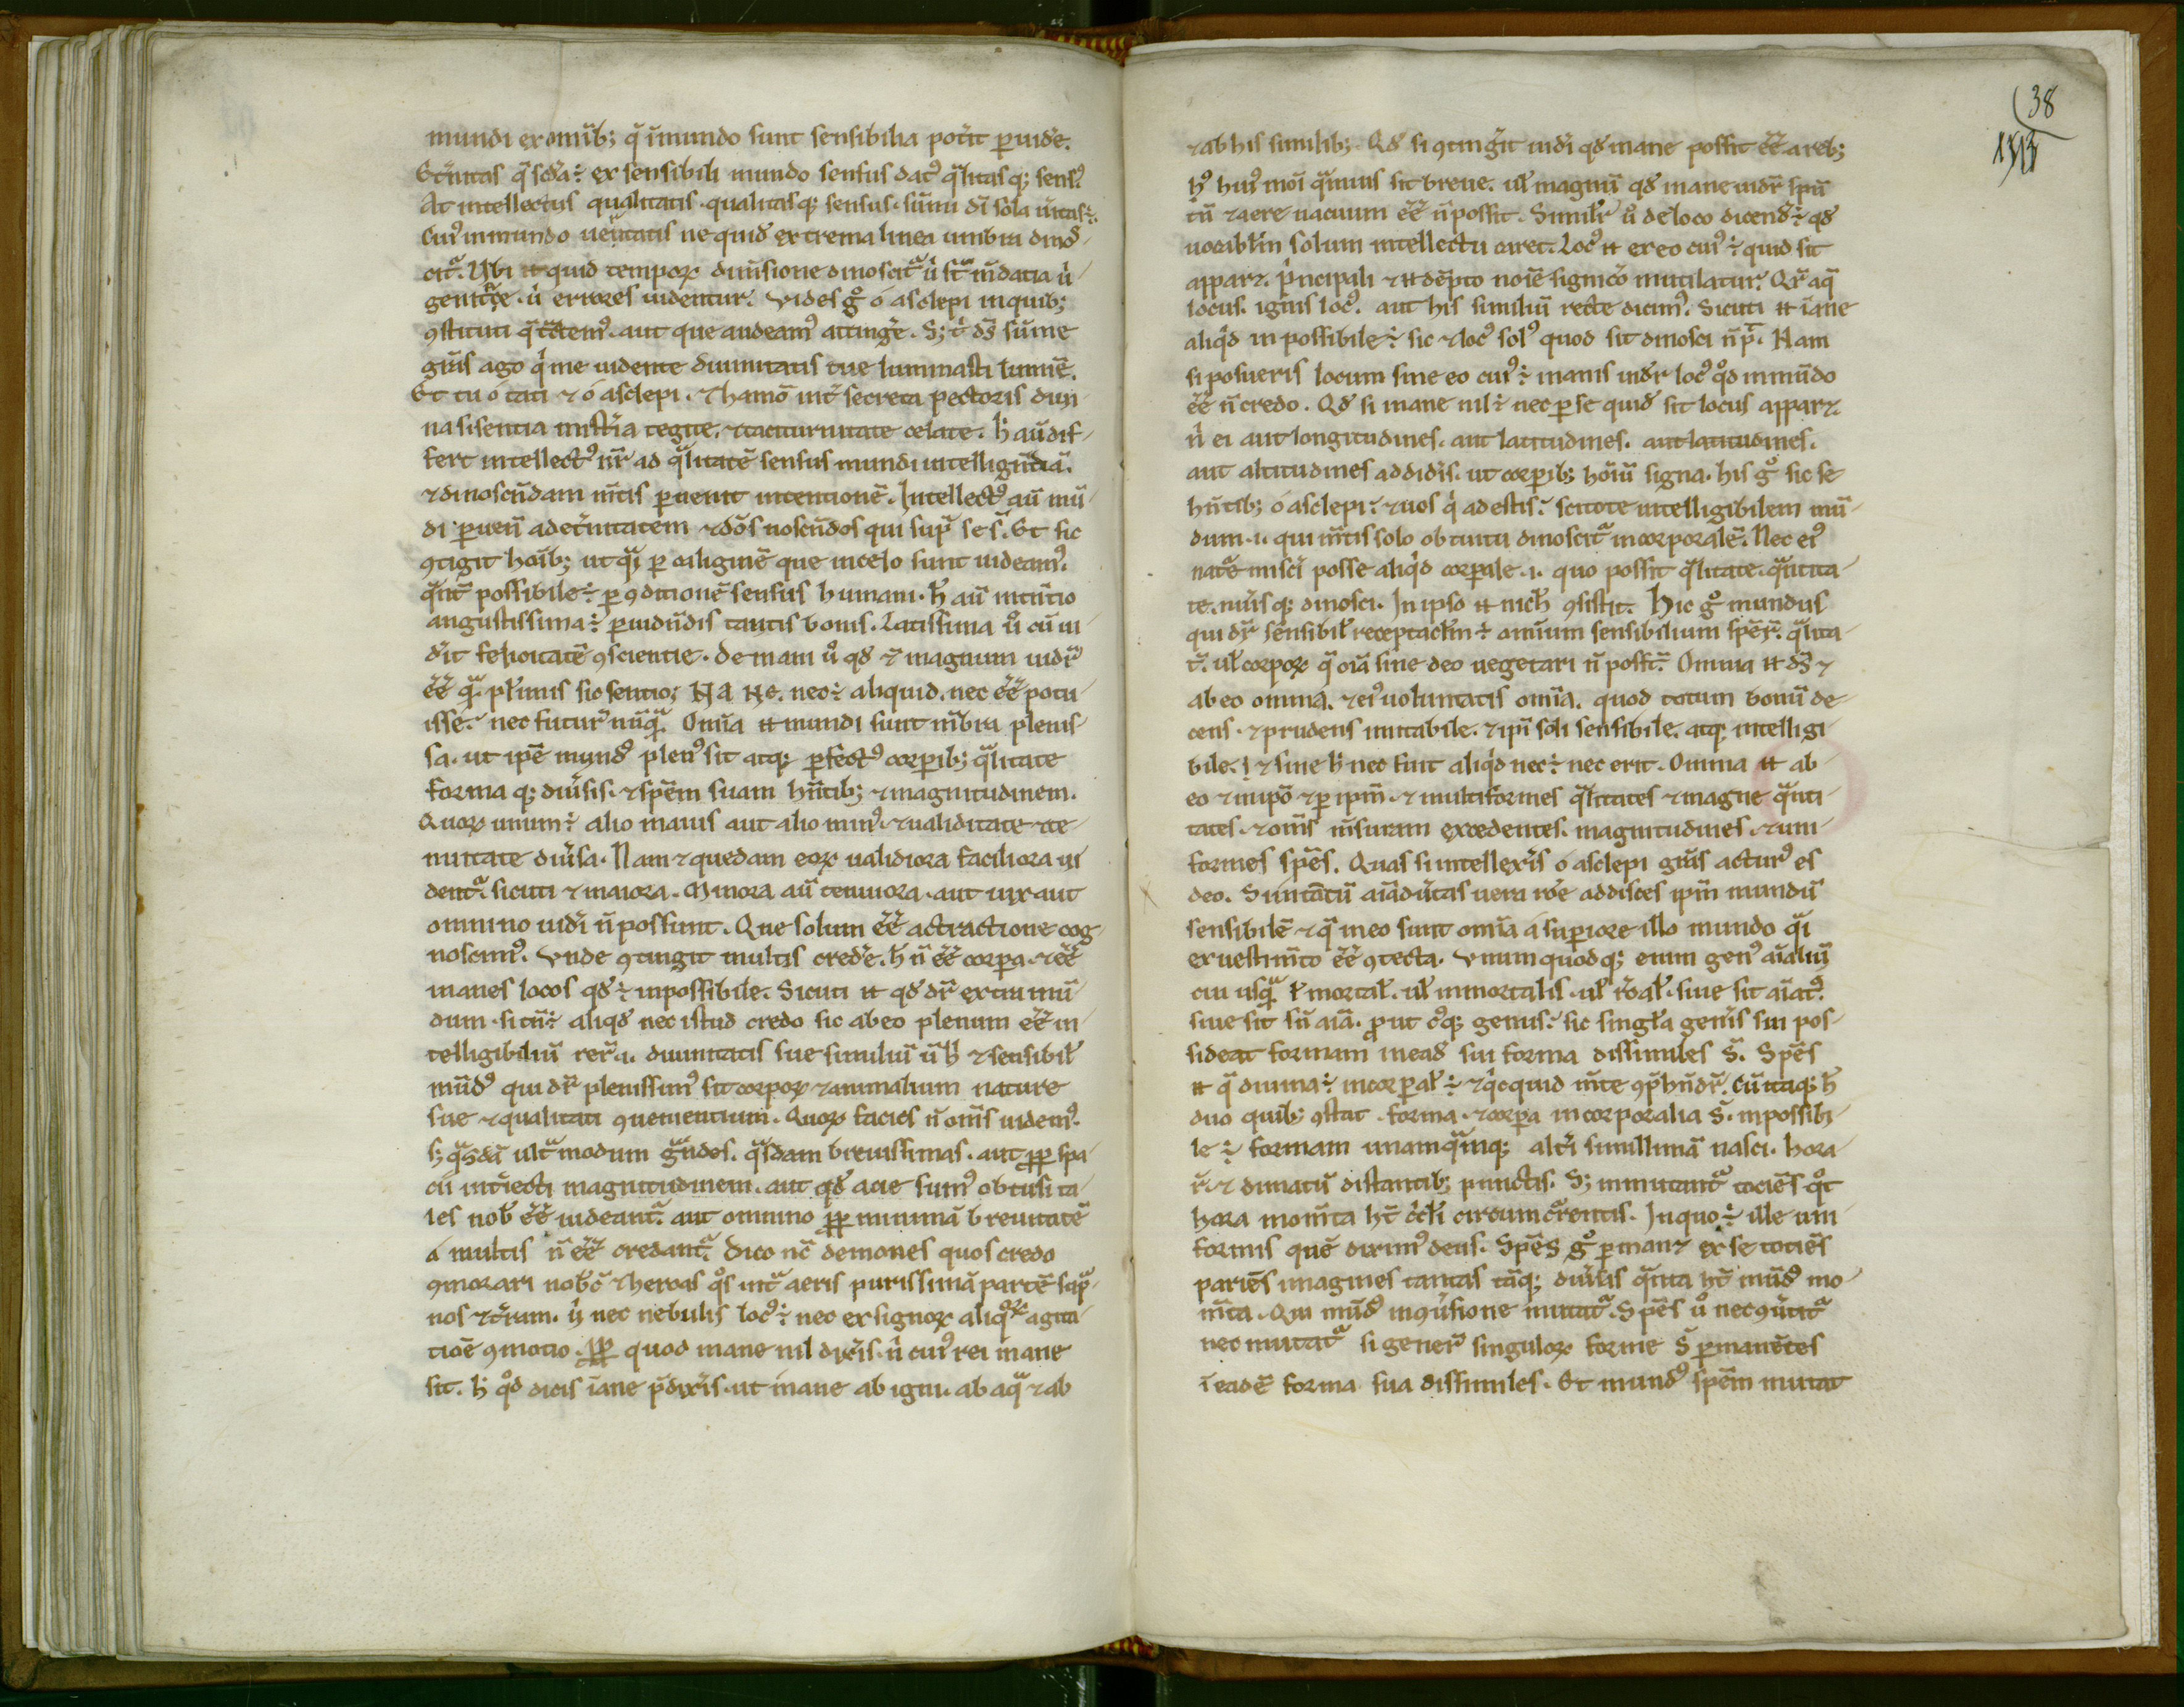 mundi ex omnib; q̃ ĩmundo sunt sensibilia pot̃it ꝑuide.
Et̃nitas q̃ sc̃da ÷ ex sensibili mundo sensus datꝰ q̃litasq; sensꝰ.
At intellectus qualitatis. qualitasq; sensus. sũmi dĩ sola ũitas÷.
Cuiꝰ inmundo
citᷓ. Ubi quid tempoꝝ dim̃sione dinoscitᷓ
errores uidentur. Vides gͦ ó asclepi in quib;
ꝯstituti aut que audeamꝰ attingẽ. S; t̾ dš sum̃e
gr̃as ago q̾ me uidente diuinitatis tue luminasti lumiñe.
Et tu ó tati ⁊ ó asclepi. ⁊ hamõ int̃ secreta pectoris diui
na silentia mist̃ia tegite. ⁊taciturnitate celate. h̃ aũ dif
fert intellectꝰ nr̃ ad q̃litatẽ sensus mundi intelligñdiã.
⁊dinoscñdam m̃tis ꝑuenit intentionẽ. Intellectꝰ aũ mũ
di ꝑuen̄ ad et̃nitatem ⁊dõs noscñdos qui supᷓ se s̃. Et sic
ꝯtigit hoĩb; ut q̃i ꝑ caliginẽ que incelo sunt uideamꝰ.
q̃nt̃ possibile ÷ ꝑ ꝯditionẽ sensus humani. h̃ aũ int̃tio
angustissima ÷ ꝑuidñdis tantis bonis. Latissima ũͦ cũ ui
d̃it felicitatẽ ꝯscientie. de inani ũͦ qđ ⁊ magnum uidr̃
eẽ q̃ pl̃imis sic sentio; Na ne. nec ÷ aliquid. nec eẽ potu
isse. nec futur̃ nũq̃. Omĩa mundi sunt m̃bra plenis
sa. ut ipẽ mundꝰ plenꝰ sit atq; ꝑfectꝰ corꝑib; q̃litate
forma q; diũsis. ⁊spẽm suam hñtib; ⁊magnitudinem.
Quoꝝ unum ÷ alio maius aut alio minꝰ. ⁊ualiditate ⁊te
nuitate diũsa. Nam ⁊quedam eoꝝ ualidiora faciliora ui
dentᷓ. sicuti ⁊ maiora. Minora aũ tenuiora. aut uix aut
omnino uidi ñ possunt. Que solum eẽ actractione cog
noscimꝰ. Vnde ꝯtingit multis credẽ. h̃ ñ eẽ corꝑa. ⁊eẽ
inanes locos qđ ÷ inpossibile. Sicuti qđ dr̃ extra mũ
dum. si tñ ÷ aliqđ nec istud credo sic ab eo plenum eẽ in
telligibiliũ rer̃ .i. diuinitatis sue similiũ ũ h̃ ⁊ sensibil̃
mũdꝰ qui dr̃ plenissimꝰ sit corpoꝝ ⁊animalium nature
sue ⁊qualitati ꝯuenientium. Quoꝝ facies ñ om̃s uidemꝰ.
s; q̃sdã ult̃ modum g̃ndes. q̃sdam breuissimas. aut ꝓꝑ spa
cii int̃iecti magnitudinem. aut qđ acie sumꝰ obtusi ta
les nob̃ eẽ uideantᷓ. aut omnino ꝓꝑ minimã breuitatẽ
á multis ñ eẽ credantᷓ. Dico nc̃ demones quos credo
ꝯmorari nob̃c̃ ⁊heroas q̊s int̃ aeris purissimã partẽ supᷓ
nos ⁊ t̃ram. ũ nec nebulis locꝰ ÷ nec ex signoꝝ aliq̊ꝝ agita
tiõe ꝯmotio. ꝓꝑ quod inane nil dix̃is. n̾ cuiꝰ rei inane
sit. h̃ q̊d dicis ĩane p̃dix̃is. ut inane ab igni. ab aq̃ ⁊ ab
⁊ab his similib;. Qđ si ꝯting̃it uidi qđ inane possit eẽ a reb;
hꝰ huiꝰ moĩ q̃muis sit breue. ul̃ magnũ qđ inane uidr̃ spũ
tñ ⁊aere uacuum eẽ ñ possit. Simil̃r ũͦ de loco dicend̃ ÷ qđ
uocabl̃m solum intellectu caret. Locꝰ ex eo cuiꝰ ÷ quid sit
apparꝫ. p̾ncipali dẽpto noĩe significõ mutilatur. Qr̃ aq̃
locus. ignis locꝰ. aut his similiũ recte dicimꝰ. Sicuti ĩane
aliq̾d inpossibile ÷ sic ⁊locꝰ solꝰ quod sit dinosci ñ p̃t. Nam
si posueris locum sine eo cuiꝰ ÷ inanis uidr̃ locꝰ q̊d inmũdo
eẽ ñ credo. Qđ si inane nil ÷ nec ꝑ se quid sit locus apparꝫ.
n̾ ei aut longitudines. aut latitudines. aut latitudines.
aut altitudines addidĩs. ut corꝑib; hoĩũ signa. his gͦ sic se
hñtib; ó asclepi ⁊uos q̾ adestis. scitote intelligibilem mũ
dum .i. qui m̃tis solo obtuitu dinoscitᷓ incorporalẽ. Nec eiꝰ
natẽ misci posse aliq̾d corꝑale .i. quo possit q̃litate. q̃ntita
te. nũisq; dinosci. In ipso nich̃ ꝯsistit. Hic gͦ mundus
qui dr̃ sensibil̃ receptacl̃m ÷ omnium sensibilium spẽr̃. q̃lita
t̃. ul̃ corpoꝝ q̃ oĩa sine deo uegetari ñ posst̃. Omnia dš ⁊
ab eo omnia. ⁊eiꝰ uoluntatis omĩa. quod totum bonũ de
cens. ⁊prudens imitabile. ⁊ipĩ soli sensibile. atq; intelligi
bile. ⁊ sine h̃ nec fuit aliq̾d nec ÷ nec erit. Omnia ab
eo ⁊inipõ ⁊ꝑ ipm̃. ⁊multiformes q̃litates ⁊magne q̃nti
tates. ⁊om̃s m̃suram excedentes. magnitudines. ⁊uni
formes spẽs. Quas si intellex̃is ó asclepi gr̃as acturꝰ es
deo. Sin tantũ aĩaduertas uera addisces ipm̃ mundũ
sensibilẽ ⁊q̃ ineo sunt omĩa á suꝑiore illo mundo q̃i
ex uestim̃to eẽ ꝯtecta. Vnum quodq; enim genꝰ aĩaliũ
cui usq̃ mortal̃. ul̃ inmortalis. ul̃ siue sit aĩatꝰ.
siue sit sñ aĩã. ꝓut genus. sic singl̃a gen̾is sui pos
sideat formam inead sui forma dissimiles s̃. Spẽs
q̃ diuina ÷ incorꝑal̃ ÷ ⁊q̾cquid m̃te ꝯp̃hñdr̃. Cũ itaq; h̃
duo quib; ꝯstat. forma. ⁊corꝑa incorporalia s̃. inpossibi
le ÷ formam unamq̃mq; alt̾i simillimã nasci. hora
r̃ ⁊ climatũ distantib; punctis. S; inmutantᷓ tociẽs q̊t
hora mom̃ta ht̃ circumcr̃entis. Inquo ÷ ille om̃i
formis quẽ diximꝰ deus. Spẽs gͦ ꝑmanꝫ ex se tociẽs
pariẽs imagines tantas tãq; diũsas q̃nta ht̃ mũdꝰ mo
m̃ta. Qui mũdꝰ inꝯũsione mutatᷓ. Spẽs ũͦ nec ꝯũtitᷓ
nec mutatᷓ si gener̃ singuloꝝ forme s̃ ꝑmanẽtes
ĩ eadẽ forma sua dissimiles. Et mundꝰ spẽm mutat
38